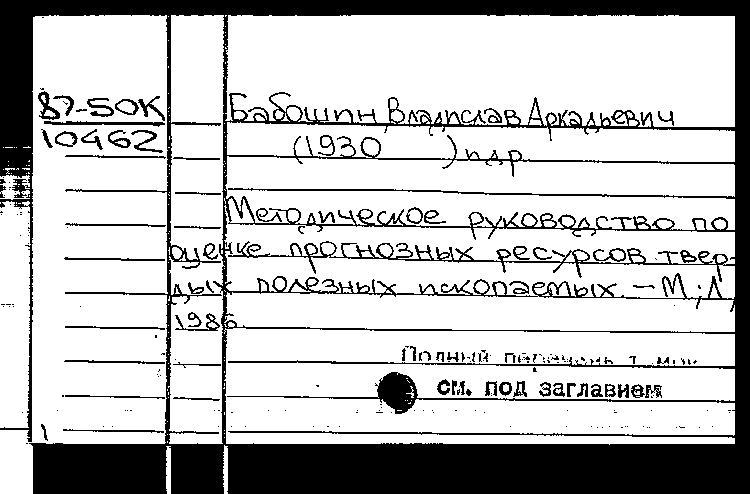 87-50К
10462
Бабошин, Владислав Аркадьевич
(1930 ) и др.
Методическое руководство по
оценке прогнозных ресурсов твер-
дых полезных ископаемых. — М.; Л.,
1986.
Полный перечень
см. под заглавием
1